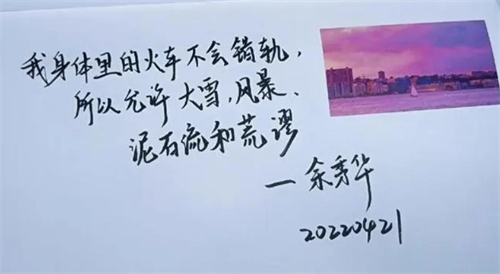 我身体里的火车不会错轨，
所以允许大雪，风暴、
泥石流和荒谬
—余秀华
20220421